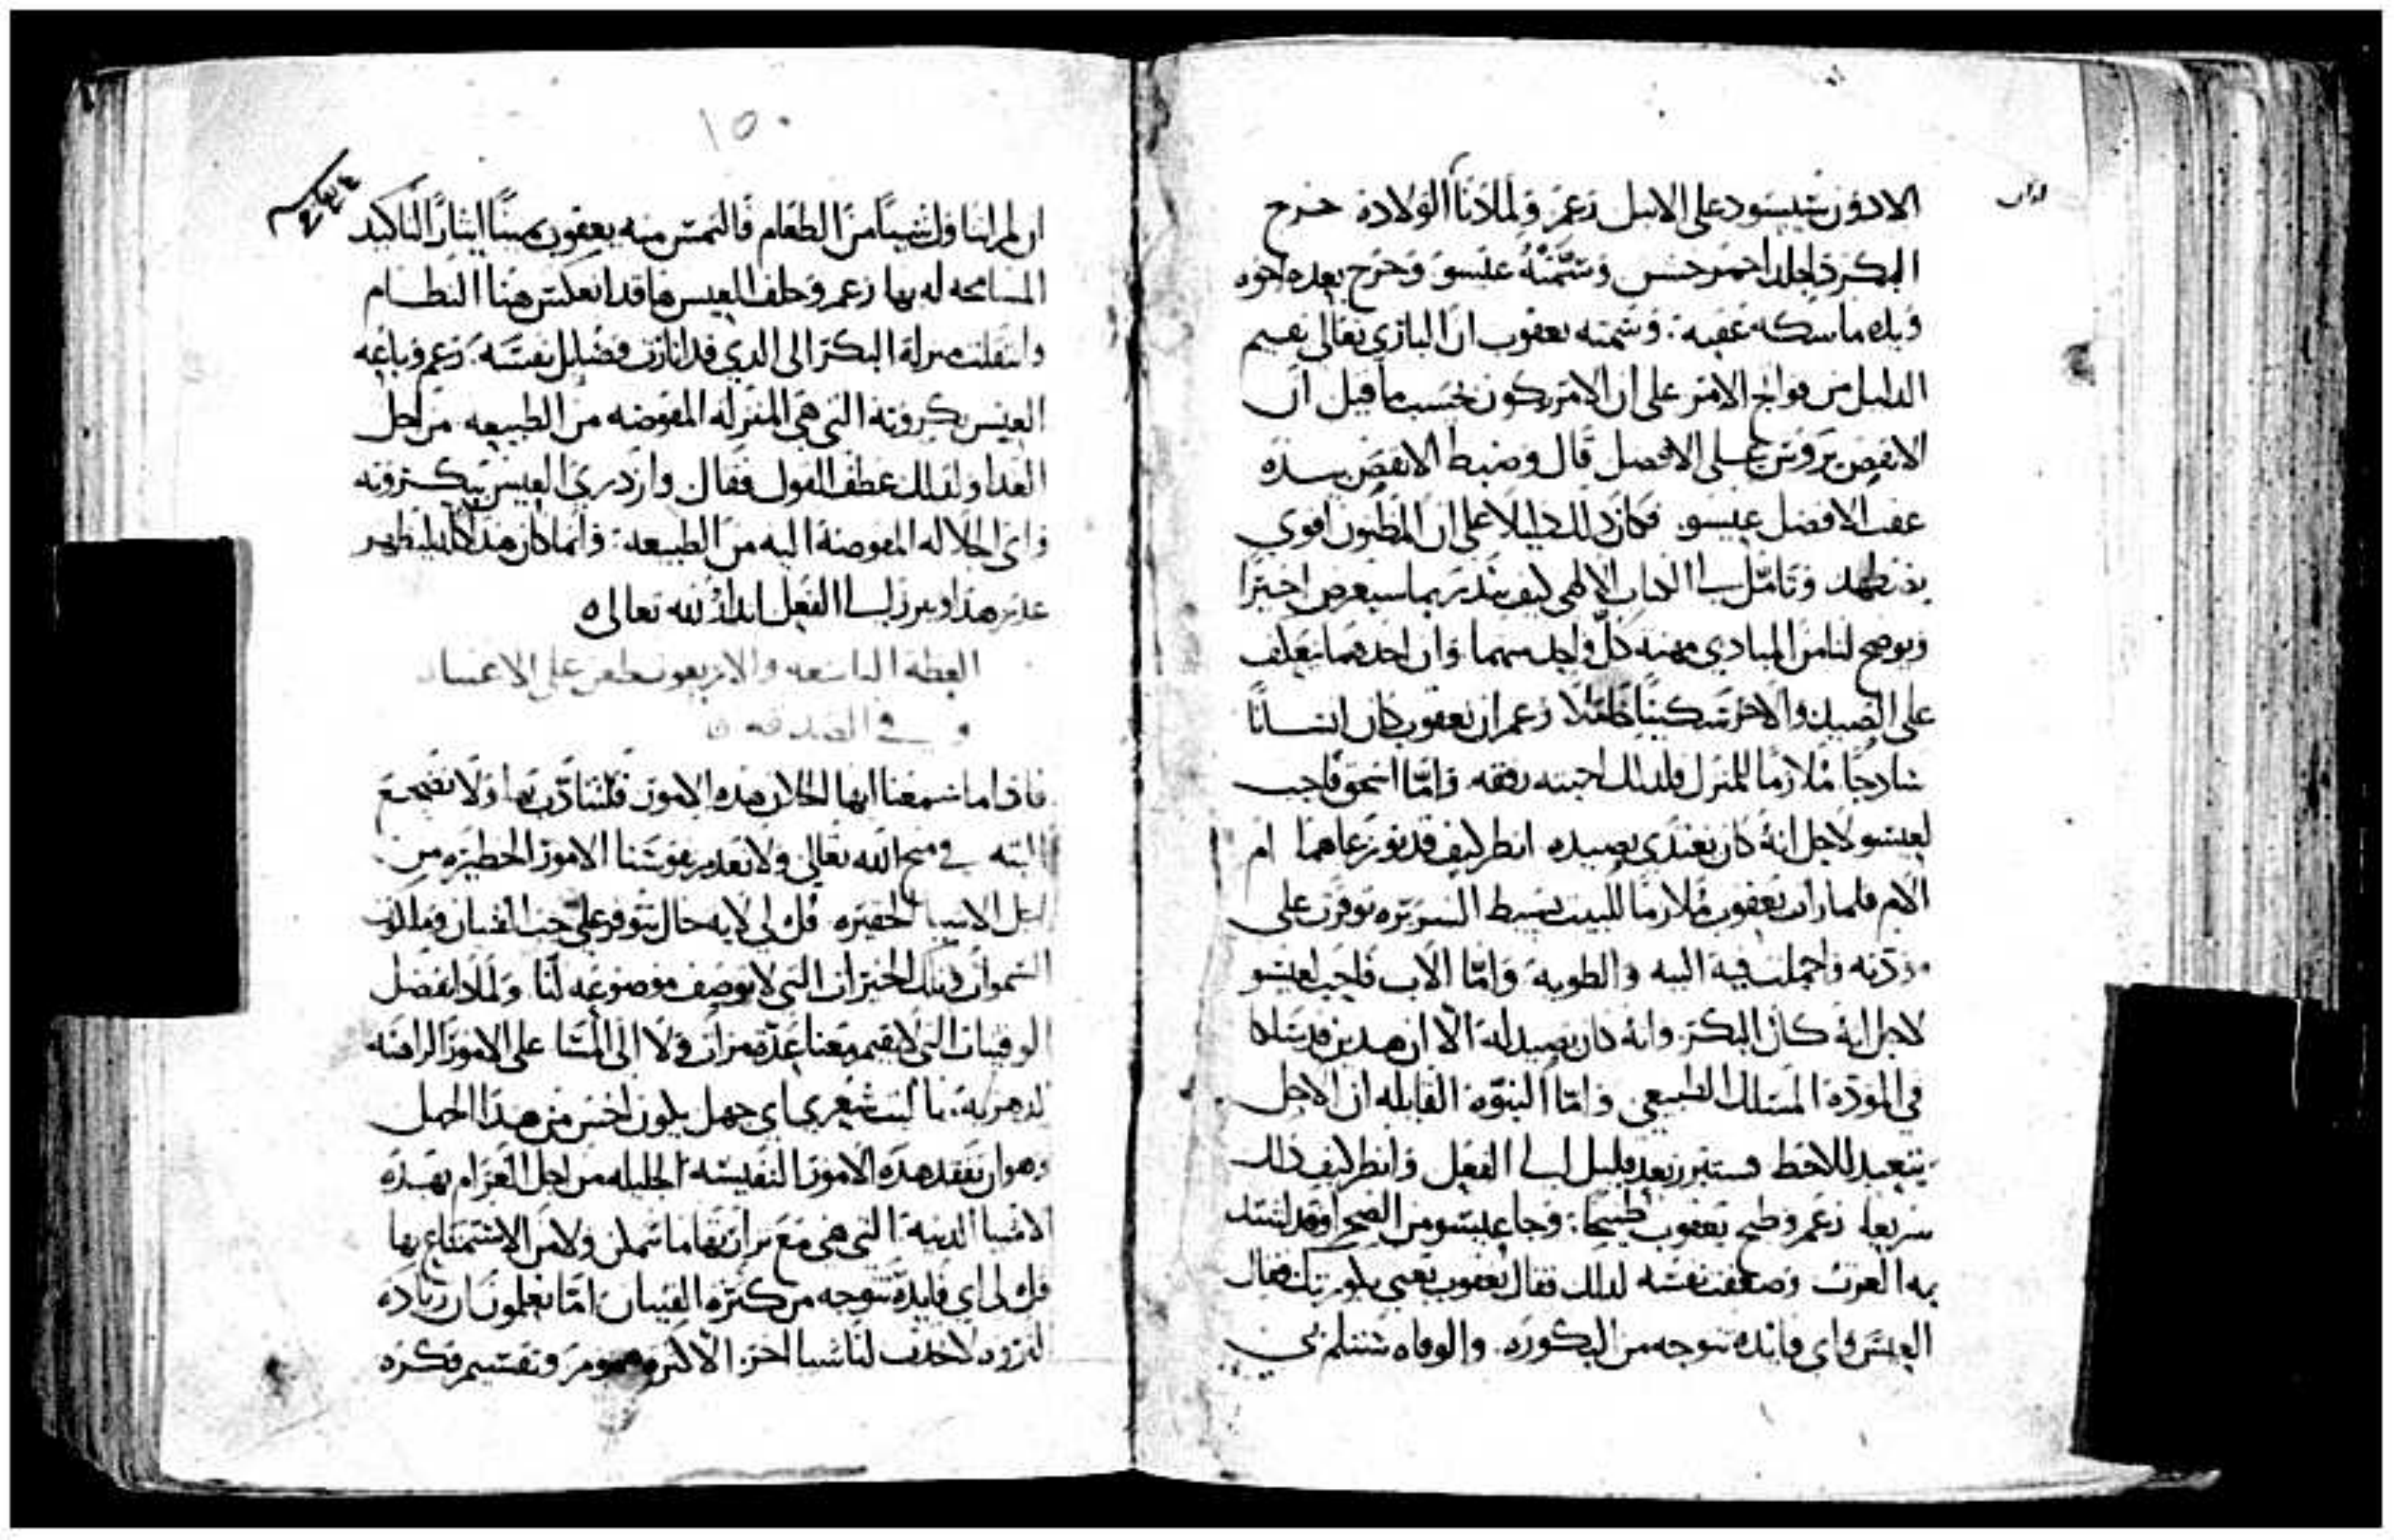 الادون سيسود على الانبل زعم ولما دنا الولادة خرج
البكر داجلد احمر خشن وسمته عيسو وخرج بعده اخوه
ويده ماسكه عقبه وسمته يعقوب ان الباري تعالى يقيم
الدليل من فواتح الامر على ان الامر يكون بحسب ما قيل ان
الانقص يروس على الافضل قال وضبط الانقص بيده
عقب الافضل عيسو فكان ذلك دليلا على ان المظنون اقوى
يضطهد وتامل الكتاب الالهي كيف ينذر بما سيعرض اخيرا
ويوضح لنا من المبادي مهنه كل واحد منهما وان احدهما يعكف
على الصيد والاخر مسكينا زعم ان يعقوب كان انسانا
سادجا ملازما للمنزل فلذلك احبته رفقه واما اسحق فاحب
لعيسو لاجل انه كان يغتدي بصيده انظر كيف قد توزعاهما ام
الام فلما رات يعقوب ملازما للبيت بسيط السريره توفرت على
مودته واجملت فيه النيه والطويه واما الاب فاحب لعيسو
لاجل انه كان البكر وانه كان يصيد له الا ان هدين قد سلكا
في المودة المسلك الطبيعي واما النبوة القايله ان الاجل
يتعبد للاحط فستبرز بعد قليل الى الفعل وانظر كيف ذلك
سريعا زعم وطبخ يعقوب طبيخا وجا عيسو من الصحرا وقد اشتد
به العرث وضعفت نفسه لذلك فقال يعقوب بعني بكوريتك فقال
العيس واي فايدة تتوجه من البكوره والوفاه تتسلم ني
١٥٠
ان لم اتناول شيئا من الطعام فالتمس منه يعقوب يمينا ايثارا لتاكيد
المسامحه له بها زعم وحلف العيس هاقد انعكس هنا النظام
وانتقلت منزلة البكر الى الذي قد انارت فضايل نفسه زعم وباعه
العيس بكرونته التي هي المنزله المفوضه من الطبيعه من اجل
الغدا ولذلك عطف القول فقال وازدرى العيس ببكرونته
واي الجلاله المفوضة اليه من الطبيعه وانما كان هذا كله ليظهر
غدر هذا ويبرز الى الفعل انذار الله تعالى
العظة التاسعه والاربعون طعن على الاغنيا
وفي الصدقه
فاذا ما سمعنا ايها الخلان هذه الامور فلنتادب بها ولا نضجع
البته في منح الله تعالى ولا نعدم نفوسنا الامور الخطيره من
اجل الاشيا الحقيره قل لي لايه حال نتوفر على حب القنيان وملكوت
السموات وتلك الخيرات التي لا توصف موضوعه لنا ولماذا نفضل
الوقتيات التي لا تقيم معنا عدة مرات ولا الى المسا على الامور الراهنه
الدهريه يا ليت شعري اي جهل يكون اخس من هذا الجهل
وهو ان نفقد هذه الامور النفيسه الجليله من اجل الغرام بهده
الاشيا الدنيه التي هي مع نزارتها ما تمكن ولا من الاستمتاع بها
قل لي اي فايدة تتوجه من كثرة القنيان اما تعلمون ان زيادة
الثروه لا تجدف لنا شيا اخر الا اكثره هموم وتقسيم فكره